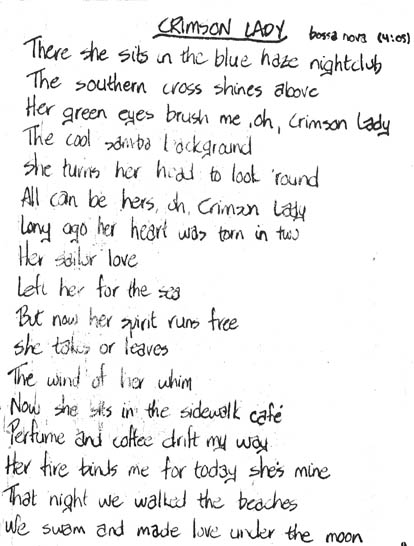 CRIMSON LADY bossa nova (4:05)
There she sits in the blue haze nightclub
The southern cross shines above
Her green eyes brush me, oh, Crimson Lady
The cool samba background
she turns her head to look 'round
All can be hers, oh, Crimson Lady
Long ago her heart was torn in two
Her sailor love
Left her for the sea
But now her spirit runs free
she takes or leaves
The wind of her whim
Now she sits in the sidewalk café
Perfume and coffee drift my way
Her fire binds me for today she's mine
That night we walked the beaches
We swam and made love under the moon